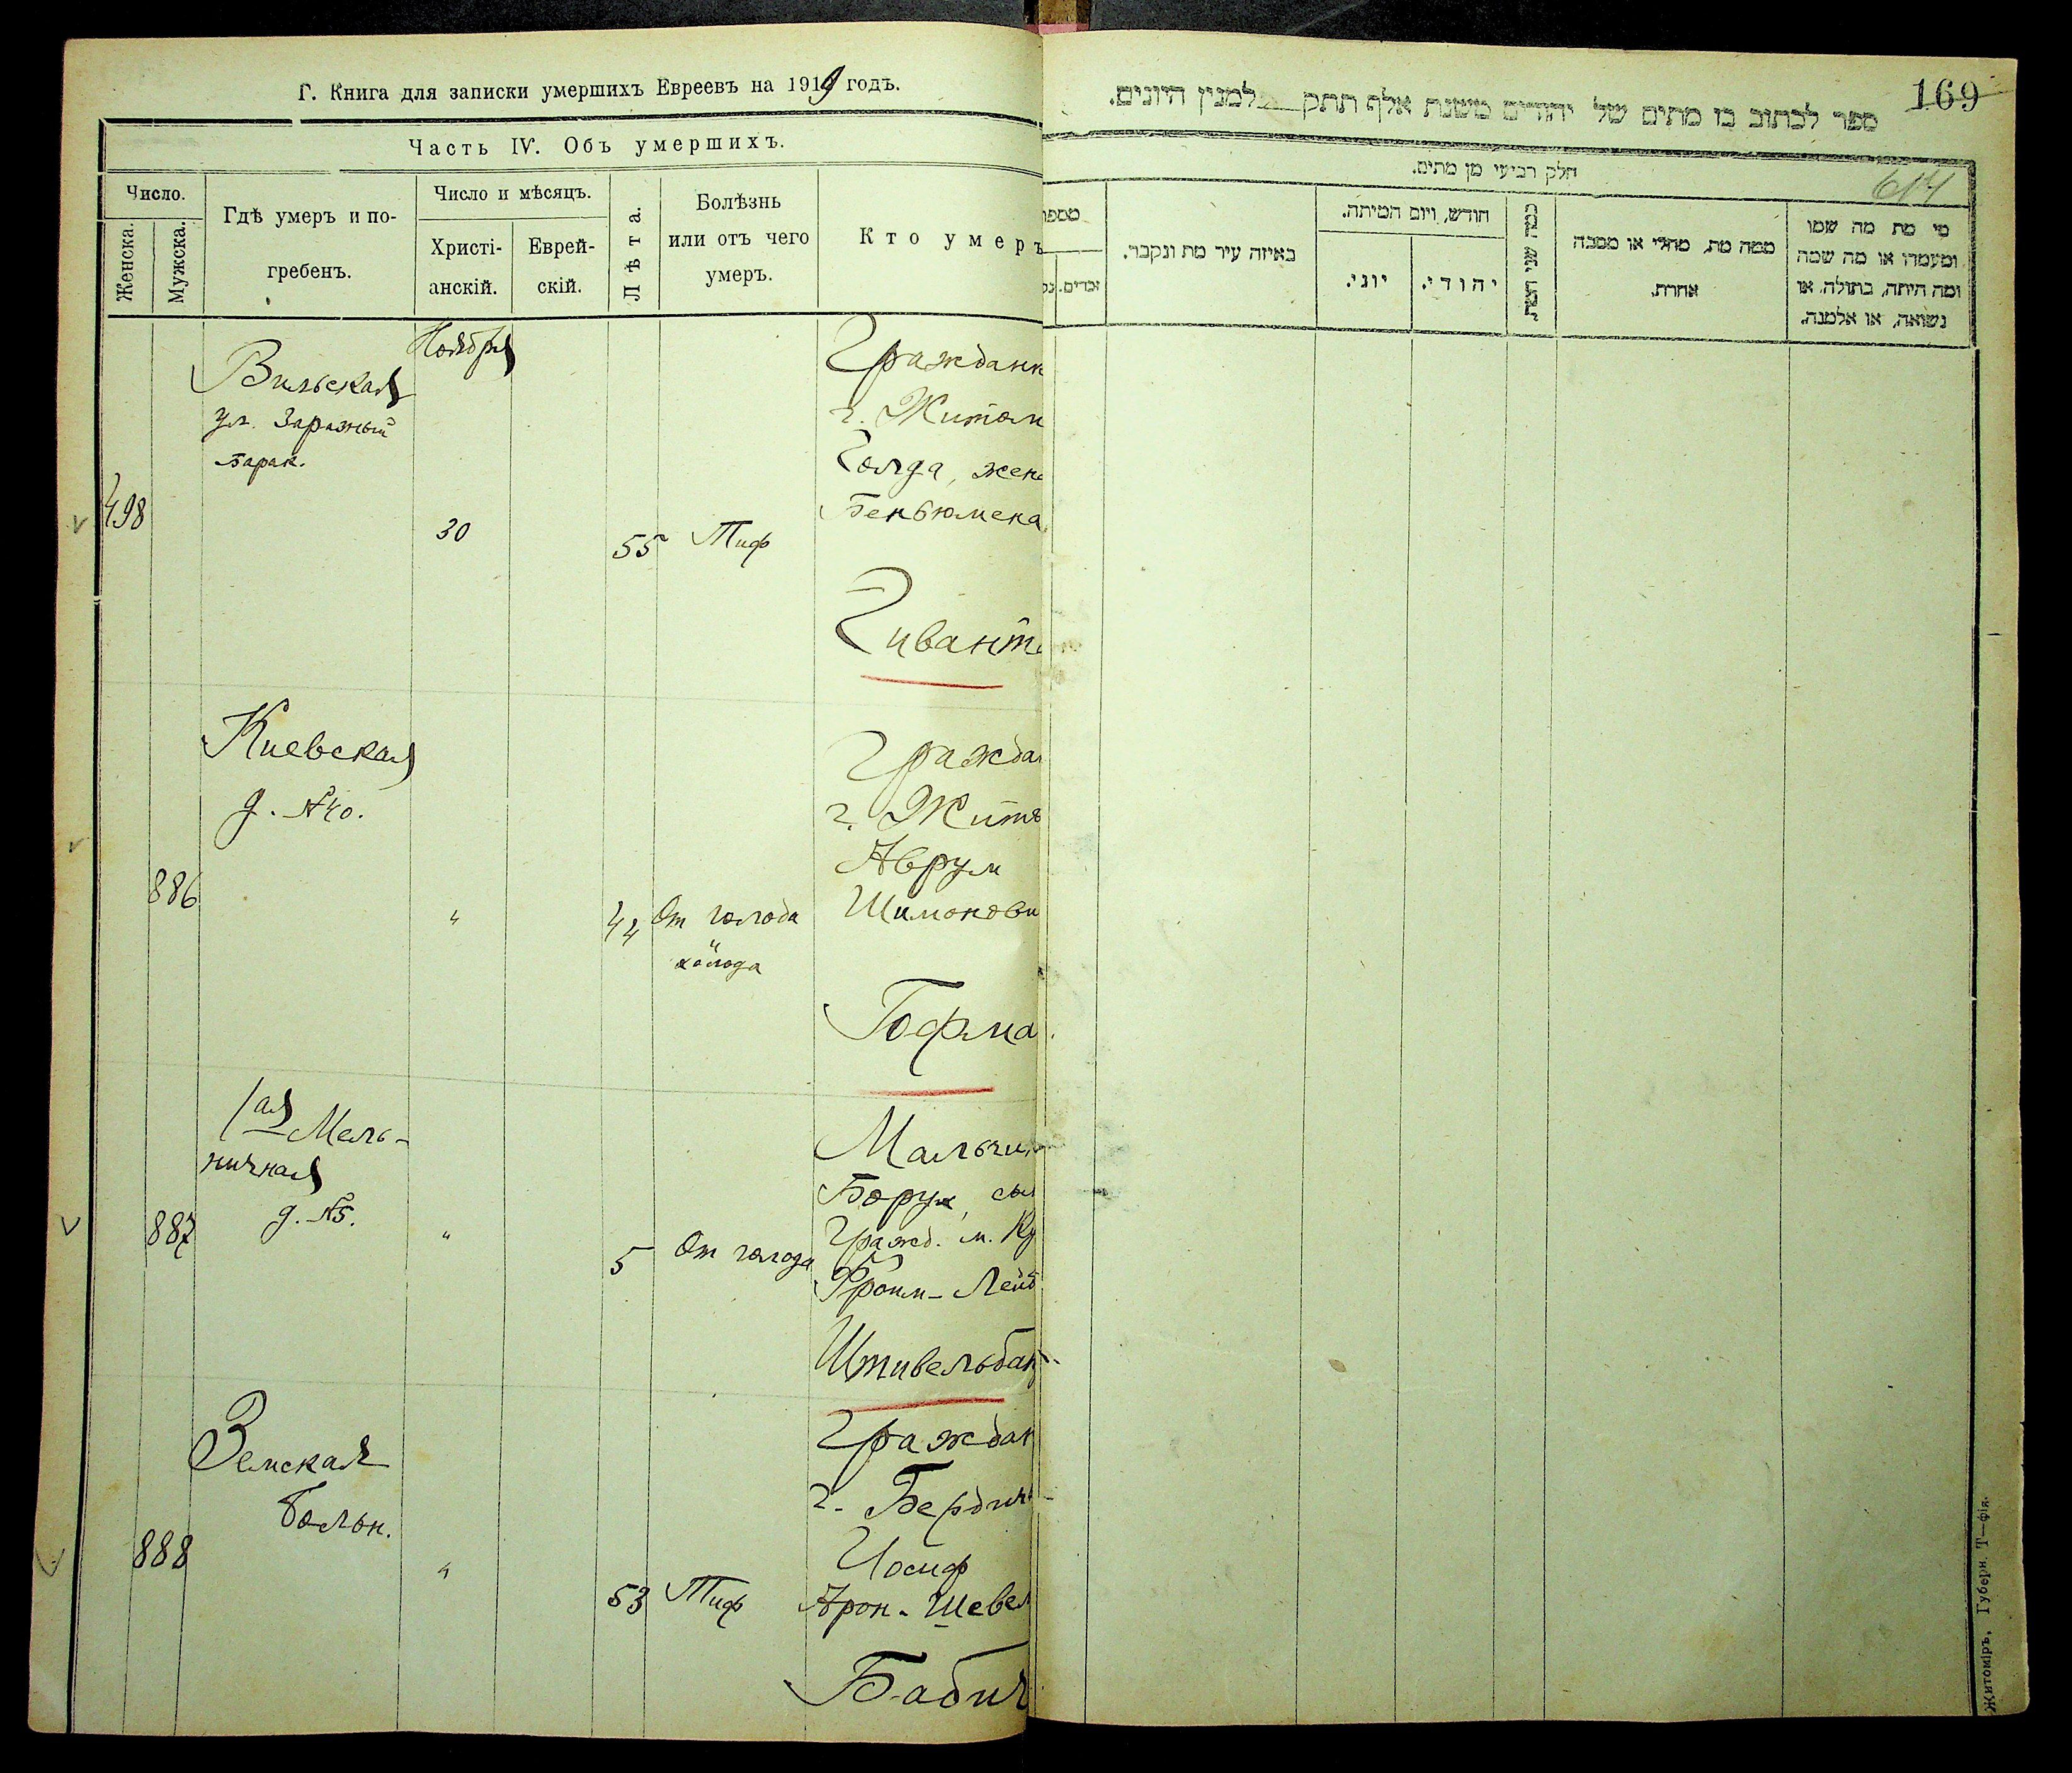 Г. Книга для записки умершихъ Евреевъ на 1919 годъ.
Часть IV. Объ умершихъ.
Число.
Женска.
Мужска.
Гдѣ умеръ и по-
гребенъ.
Число и мѣсяцъ.
Христі-
анскій.
Еврей-
скій.
Лѣта.
Болѣзнь
или отъ чего
умеръ.
Кто умеръ
498
Вильская
ул. Заразный
барак.
Ноября
30
55
Тиф
Гражданк
г. Житом
Голда, жена
Беньюмена
Гивант
886
Киевская
д. №40.
"
44
От голода
и
холода
Граждан
г. Жито
Аврум
Шимонови
Гофма
887
1ая Мель-
ничная
д. №5.
"
5
От голода
Мальчик
Борух, сын
Гражд. м. Ку
Фроим-Лейб
Штивельбан
888
Земская
больн.
"
53
Тиф
Граждан
г. Бердич
Иосиф
Арон-Шевел
Бабич
169
614
ספר לכתוב בו מתים של יהודים משנת אלף תתק למנין היונים.
חלק רביעי מן מתים.
מספר
זכרים.
באיזה עיר מת ונקבר.
חודש, ויום המיתה.
יוני.
יהודי.
כמה שני המת.
ממה מת, מחלי או מסבה
אחרת.
מי מת מה שמו
ומעמדו או מה שמה
ומה היתה, בתולה, או
נשואה, או אלמנה.
Житоміръ, Губерн. Т—фія.